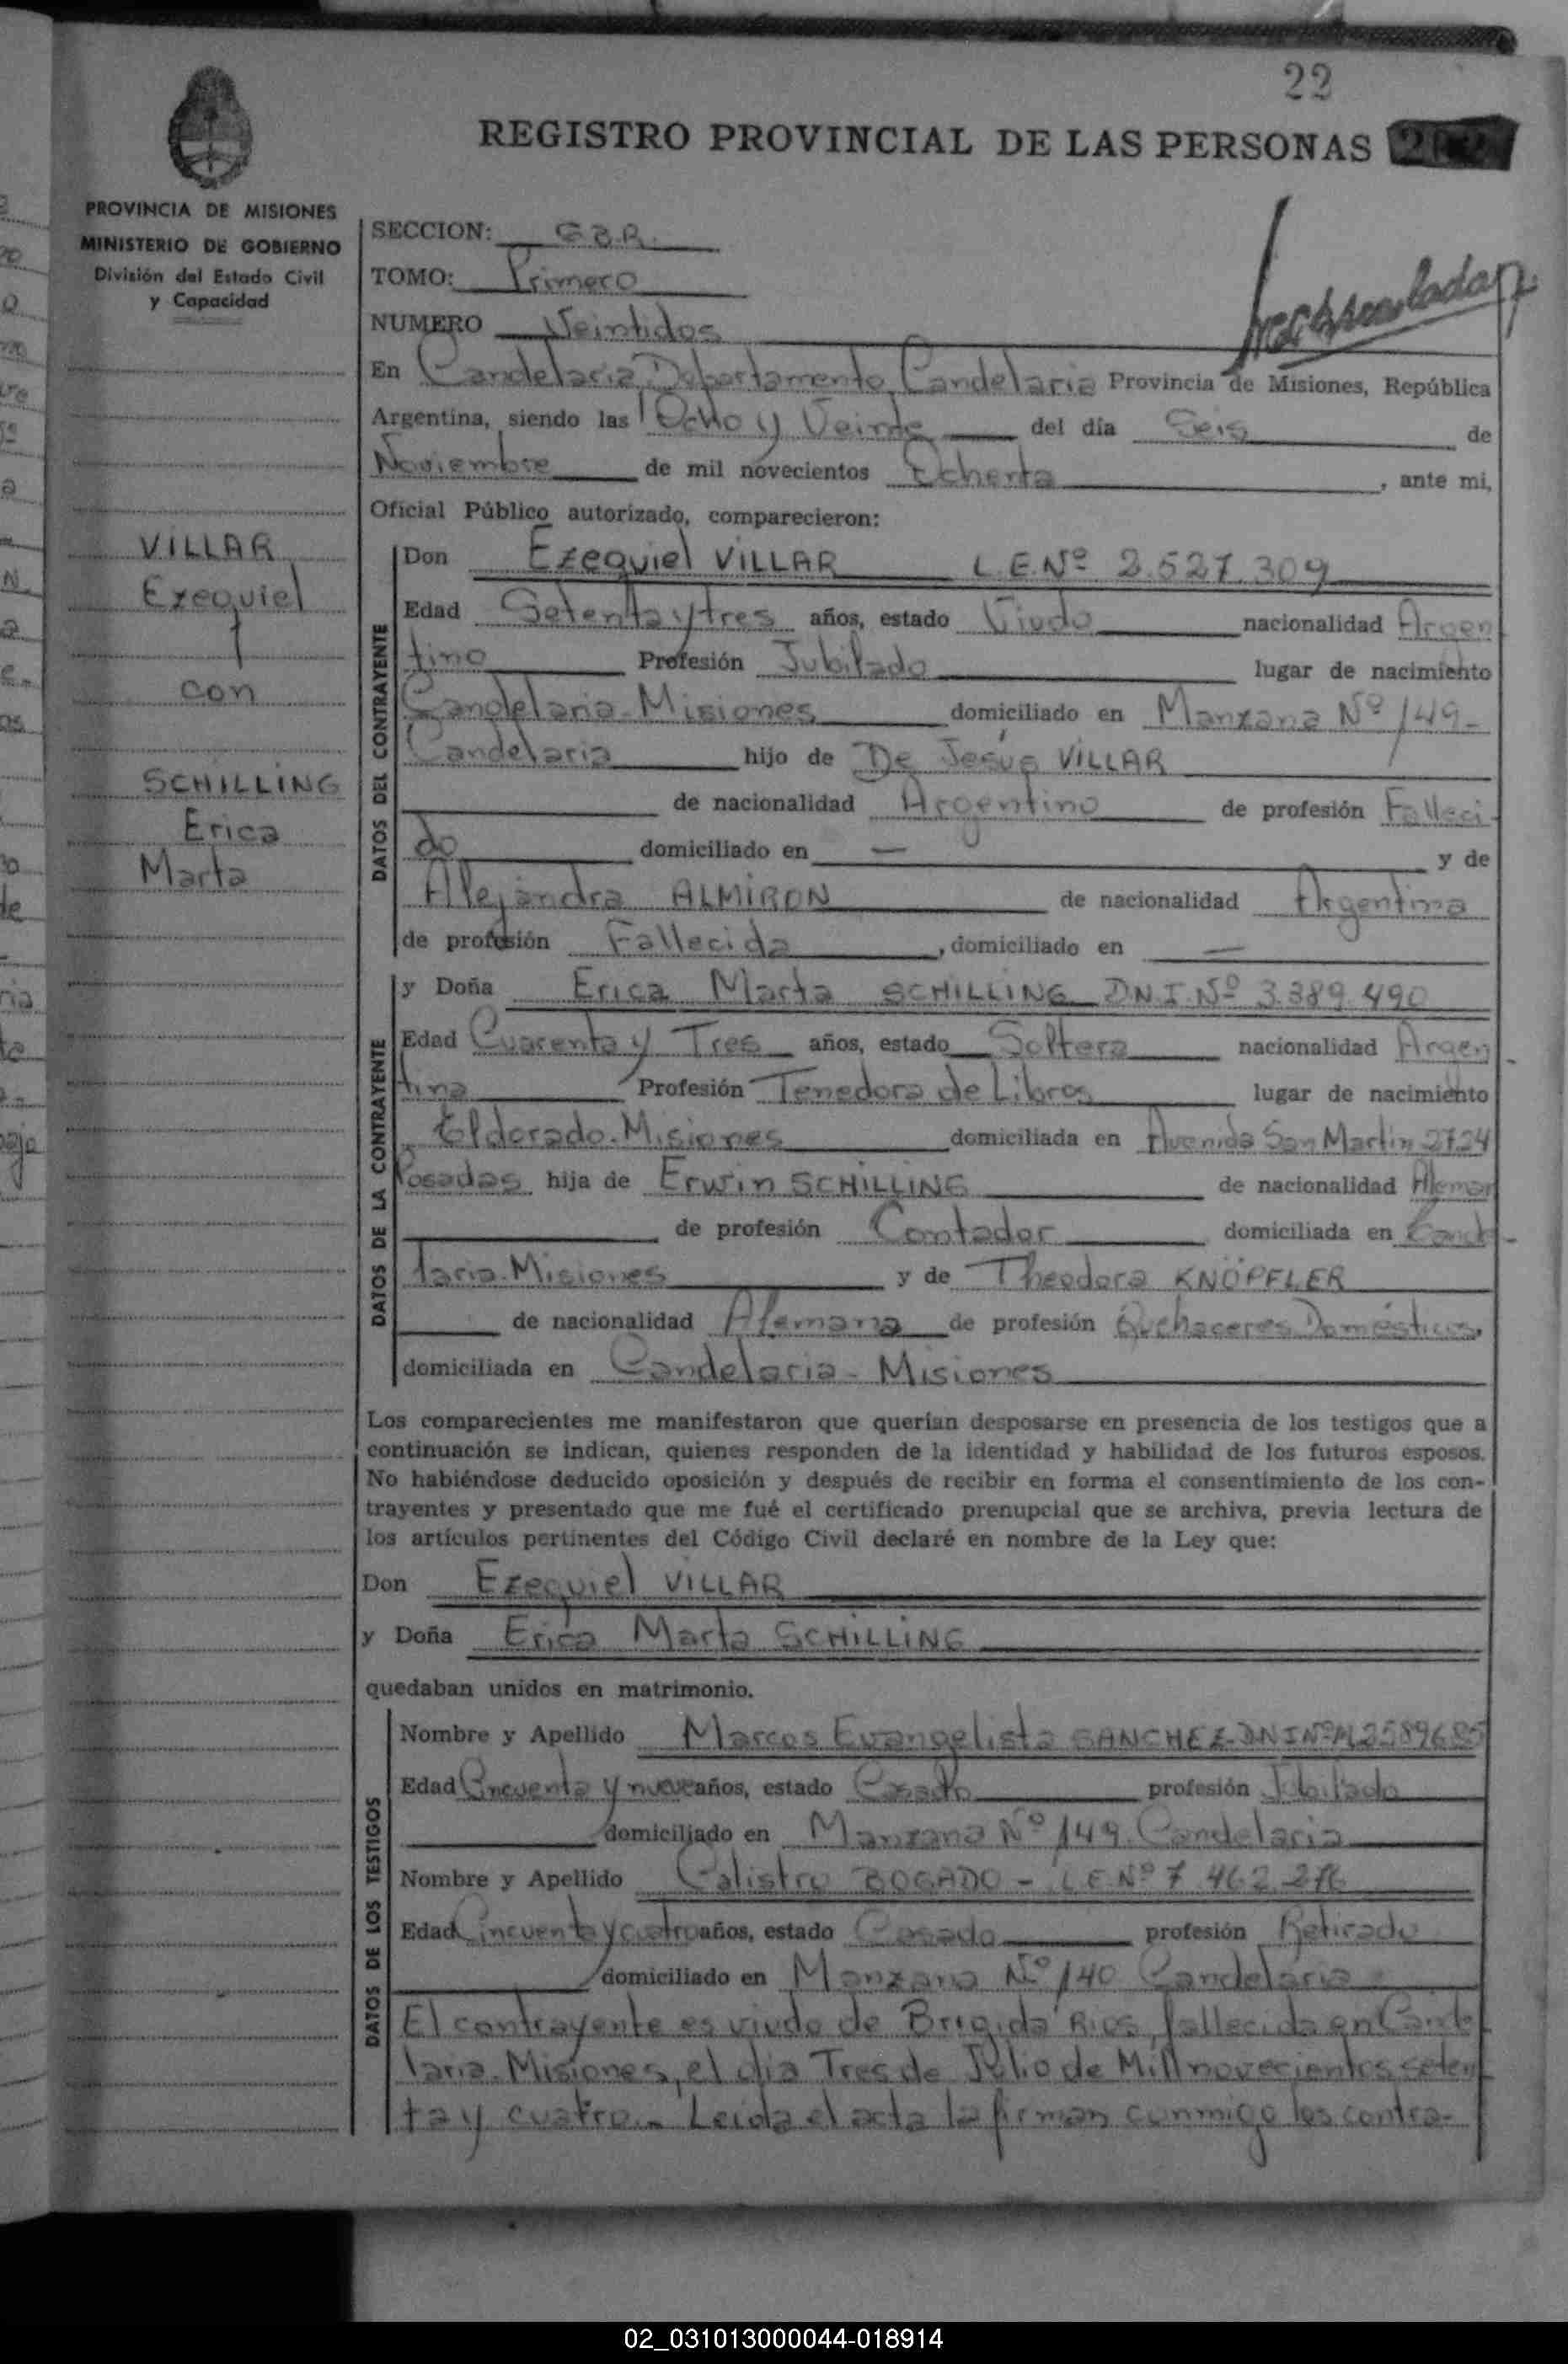 22
REGISTRO PROVINCIAL DE LAS PERSONAS
PROVINCIA DE MISIONES
MINISTERIO DE GOBIERNO
División del Estado Civil
y Capacidad
SECCION:
TOMO: Primero
NUMERO Veintidos
En Candelaria Departamento Candelaria Provincia de Misiones, República
Argentina, siendo las Ocho y Veinte del día Seis de
Noviembre de mil novecientos Ochenta, ante mi,
Oficial Público autorizado, comparecieron:
VILLAR
Ezequiel
con
SCHILLING
Erica
Marta
DATOS DEL CONTRAYENTE
Don Ezequiel VILLAR L.E.Nº 2.527.309
Edad Setenta y tres años, estado Viudo nacionalidad Argen
tino Profesión Jubilado lugar de nacimiento
Candelaria-Misiones domiciliado en Manzana Nº 149-
Candelaria hijo de De Jesús VILLAR
de nacionalidad Argentino de profesión Falleci-
do domiciliado en — y de
Alejandra ALMIRON de nacionalidad Argentina
de profesión Fallecida, domiciliado en —
DATOS DE LA CONTRAYENTE
y Doña Erica Marta SCHILLING D.N.I.Nº 3.389.490
Edad Cuarenta y Tres años, estado Soltera nacionalidad Argen-
tina Profesión Tenedora de Libros lugar de nacimiento
Eldorado-Misiones domiciliada en Avenida San Martin 2724
Posadas hija de Erwin SCHILLING de nacionalidad Aleman
de profesión Contador domiciliada en Cande-
laria-Misiones y de Theodora KNÖPFLER
de nacionalidad Alemana de profesión Quehaceres Domésticos,
domiciliada en Candelaria - Misiones
Los comparecientes me manifestaron que querían desposarse en presencia de los testigos que a
continuación se indican, quienes responden de la identidad y habilidad de los futuros esposos.
No habiéndose deducido oposición y después de recibir en forma el consentimiento de los con-
trayentes y presentado que me fué el certificado prenupcial que se archiva, previa lectura de
los artículos pertinentes del Código Civil declaré en nombre de la Ley que:
Don Ezequiel VILLAR
y Doña Erica Marta SCHILLING
quedaban unidos en matrimonio.
DATOS DE LOS TESTIGOS
Nombre y Apellido Marcos Evangelista SANCHEZ-DNI Nº M 2589685
Edad Cincuenta y nueve años, estado Casado profesión Jubilado
domiciliado en Manzana Nº 149 Candelaria
Nombre y Apellido Calistro BOGADO - L.E.Nº 7.462.276
Edad Cincuenta y cuatro años, estado Casado profesión Retirado
domiciliado en Manzana Nº 140 Candelaria
El contrayente es viudo de Brigida Rios, fallecida en Cande
laria-Misiones, el dia Tres de Julio de Mil novecientos seten
ta y cuatro.- Leida el acta la firman conmigo los contra-
02_031013000044-018914